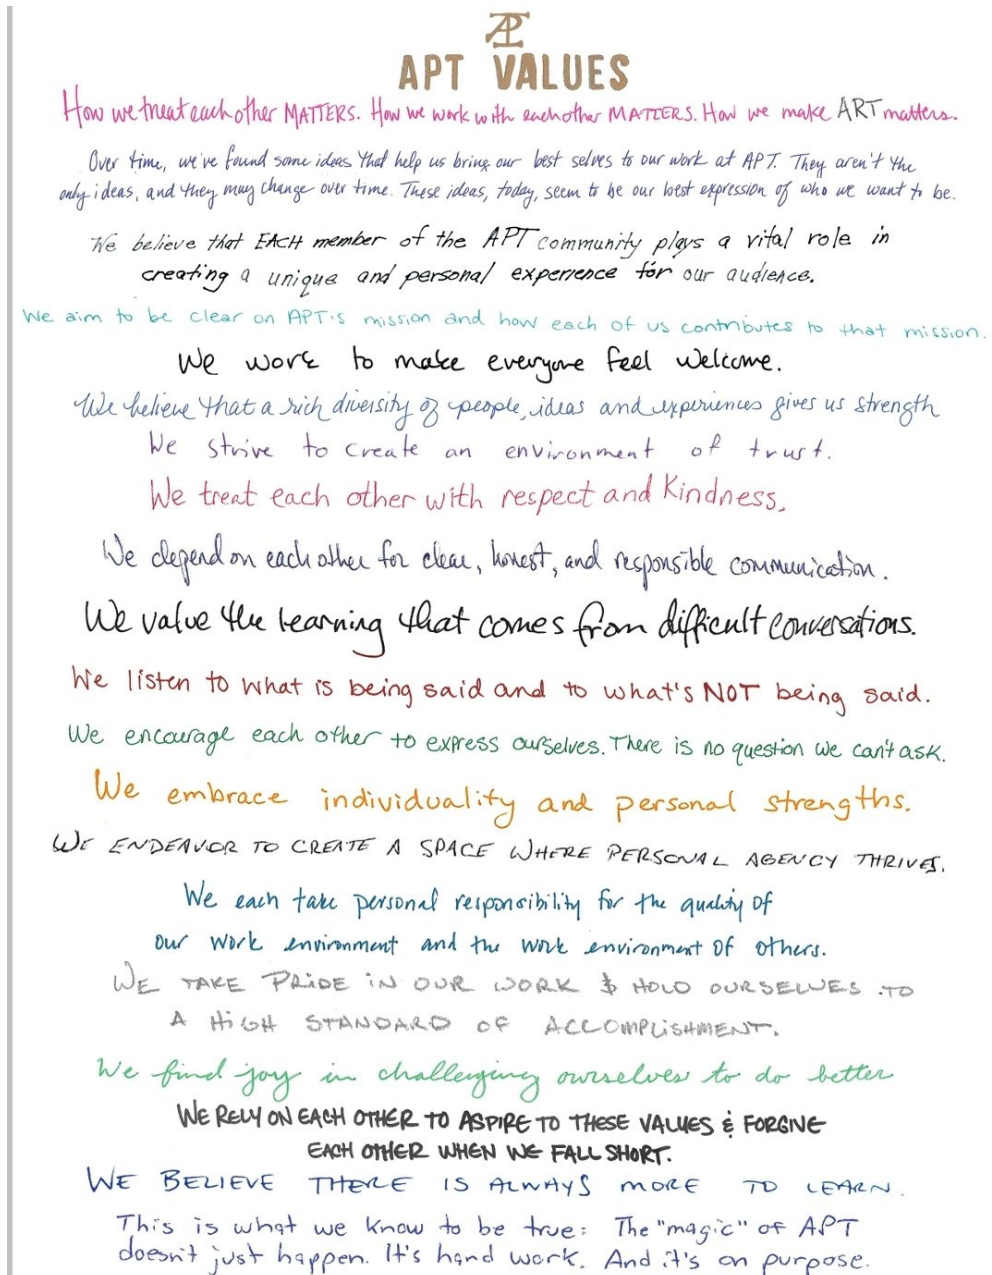 APT
APT VALUES
How we treat each other MATTERS. How we work with each other MATTERS. How we make ART matters.
Over time, we've found some ideas that help us bring our best selves to our work at APT. They aren't the
only ideas, and they may change over time. These ideas, today, seem to be our best expression of who we want to be.
We believe that EACH member of the APT community plays a vital role in
creating a unique and personal experience for our audience.
We aim to be clear on APT's mission and how each of us contributes to that mission.
We work to make everyone feel welcome.
We believe that a rich diversity of people, ideas and experiences gives us strength
We strive to create an environment of trust.
We treat each other with respect and Kindness.
We depend on each other for clear, honest, and responsible communication.
We value the learning that comes from difficult conversations.
We listen to what is being said and to what's NOT being said.
We encourage each other to express ourselves. There is no question we can't ask.
We embrace individuality and personal strengths.
WE ENDEAVOR TO CREATE A SPACE WHERE PERSONAL AGENCY THRIVES.
We each take personal responsibility for the quality of
our work environment and the work environment of others.
WE TAKE PRIDE IN OUR WORK & HOLD OURSELVES TO
A HIGH STANDARD OF ACCOMPLISHMENT.
We find joy in challenging ourselves to do better
WE RELY ON EACH OTHER TO ASPIRE TO THESE VALUES & FORGIVE
EACH OTHER WHEN WE FALL SHORT.
WE BELIEVE THERE IS ALWAYS MORE TO LEARN.
This is what we know to be true: The "magic" of APT
doesn't just happen. It's hard work. And it's on purpose.